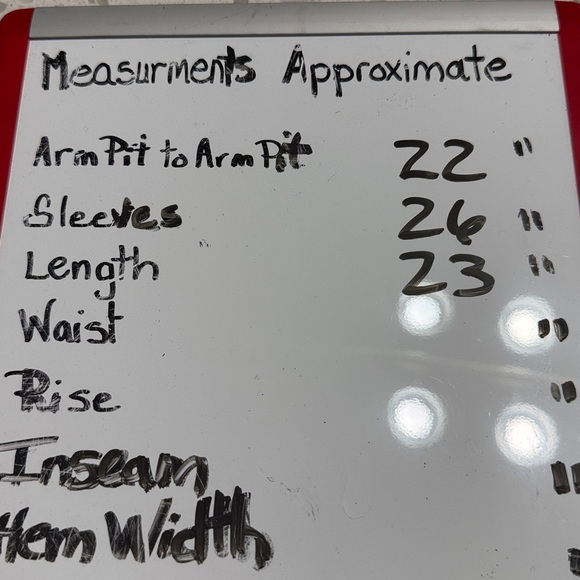 Measurments Approximate
ArmPit to ArmPit 22 "
Sleeves 26 "
Length 23 "
Waist "
Rise "
Inseam "
Hem Width "